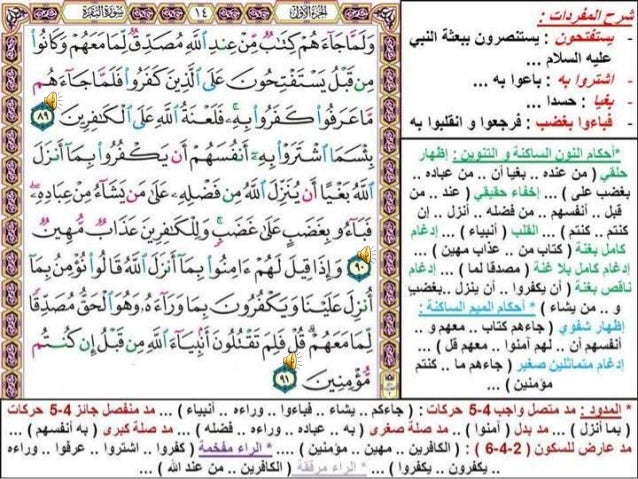 الجزء الأول
١٤
سورة البقرة
وَلَمَّا جَآءَهُمْ كِتَٰبٌ مِّنْ عِندِ ٱللَّهِ مُصَدِّقٌ لِّمَا مَعَهُمْ وَكَانُوا۟
مِن قَبْلُ يَسْتَفْتِحُونَ عَلَى ٱلَّذِينَ كَفَرُوا۟ فَلَمَّا جَآءَهُم
مَّا عَرَفُوا۟ كَفَرُوا۟ بِهِۦ ۚ فَلَعْنَةُ ٱللَّهِ عَلَى ٱلْكَٰفِرِينَ ٨٩
بِئْسَمَا ٱشْتَرَوْا۟ بِهِۦٓ أَنفُسَهُمْ أَن يَكْفُرُوا۟ بِمَآ أَنزَلَ
ٱللَّهُ بَغْيًا أَن يُنَزِّلَ ٱللَّهُ مِن فَضْلِهِۦ عَلَىٰ مَن يَشَآءُ مِنْ عِبَادِهِۦ ۖ
فَبَآءُو بِغَضَبٍ عَلَىٰ غَضَبٍ ۚ وَلِلْكَٰفِرِينَ عَذَابٌ مُّهِينٌ
٩٠ وَإِذَا قِيلَ لَهُمْ ءَامِنُوا۟ بِمَآ أَنزَلَ ٱللَّهُ قَالُوا۟ نُؤْمِنُ بِمَآ
أُنزِلَ عَلَيْنَا وَيَكْفُرُونَ بِمَا وَرَآءَهُۥ وَهُوَ ٱلْحَقُّ مُصَدِّقًا
لِّمَا مَعَهُمْ ۗ قُلْ فَلِمَ تَقْتُلُونَ أَنۢبِيَآءَ ٱللَّهِ مِن قَبْلُ إِن كُنتُم
مُّؤْمِنِينَ ٩١
شرح المفردات :
- يستفتحون : يستنصرون ببعثة النبي
عليه السلام ...
- اشتروا به : باعوا به ...
- بغيا : حسدا ...
- فباءوا بغضب : فرجعوا و انقلبوا به
*أحكام النون الساكنة و التنوين : إظهار
حلقي ( من عنده .. بغيا أن .. من عباده ..
بغضب على ) ... إخفاء حقيقي ( عند .. من
قبل .. أنفسهم .. من فضله .. أنزل .. إن
كنتم .. كنتم ) ... القلب ( أنبياء ) ... إدغام
كامل بغنة ( كتاب من .. عذاب مهين ) ...
إدغام كامل بلا غنة ( مصدقا لما ) ... إدغام
ناقص بغنة ( أن يكفروا .. أن ينزل ..بغضب
و .. من يشاء ) * أحكام الميم الساكنة :
إظهار شفوي ( جاءهم كتاب .. معهم و ..
أنفسهم أن .. لهم آمنوا .. معهم قل ) ...
إدغام متماثلين صغير ( جاءهم ما .. كنتم
مؤمنين ) ...
* المدود : مد متصل واجب 4-5 حركات : ( جاءكم .. يشاء .. فباءوا .. وراءه .. أنبياء ) ... مد منفصل جائز 4-5 حركات
( بما أنزل ) ... مد بدل ( آمنوا ) .. مد صلة صغرى ( به .. عباده .. وراءه .. فضله ) ... مد صلة كبرى ( به أنفسهم ) ...
مد عارض للسكون ( 2-4-6 ) : ( الكافرين .. مهين .. مؤمنين ) .... * الراء مفخمة ( كفروا .. اشتروا .. عرفوا .. وراءه
.. يكفرون .. يكفروا ) ... * الراء مرققة ( الكافرين .. من عند الله ) ...